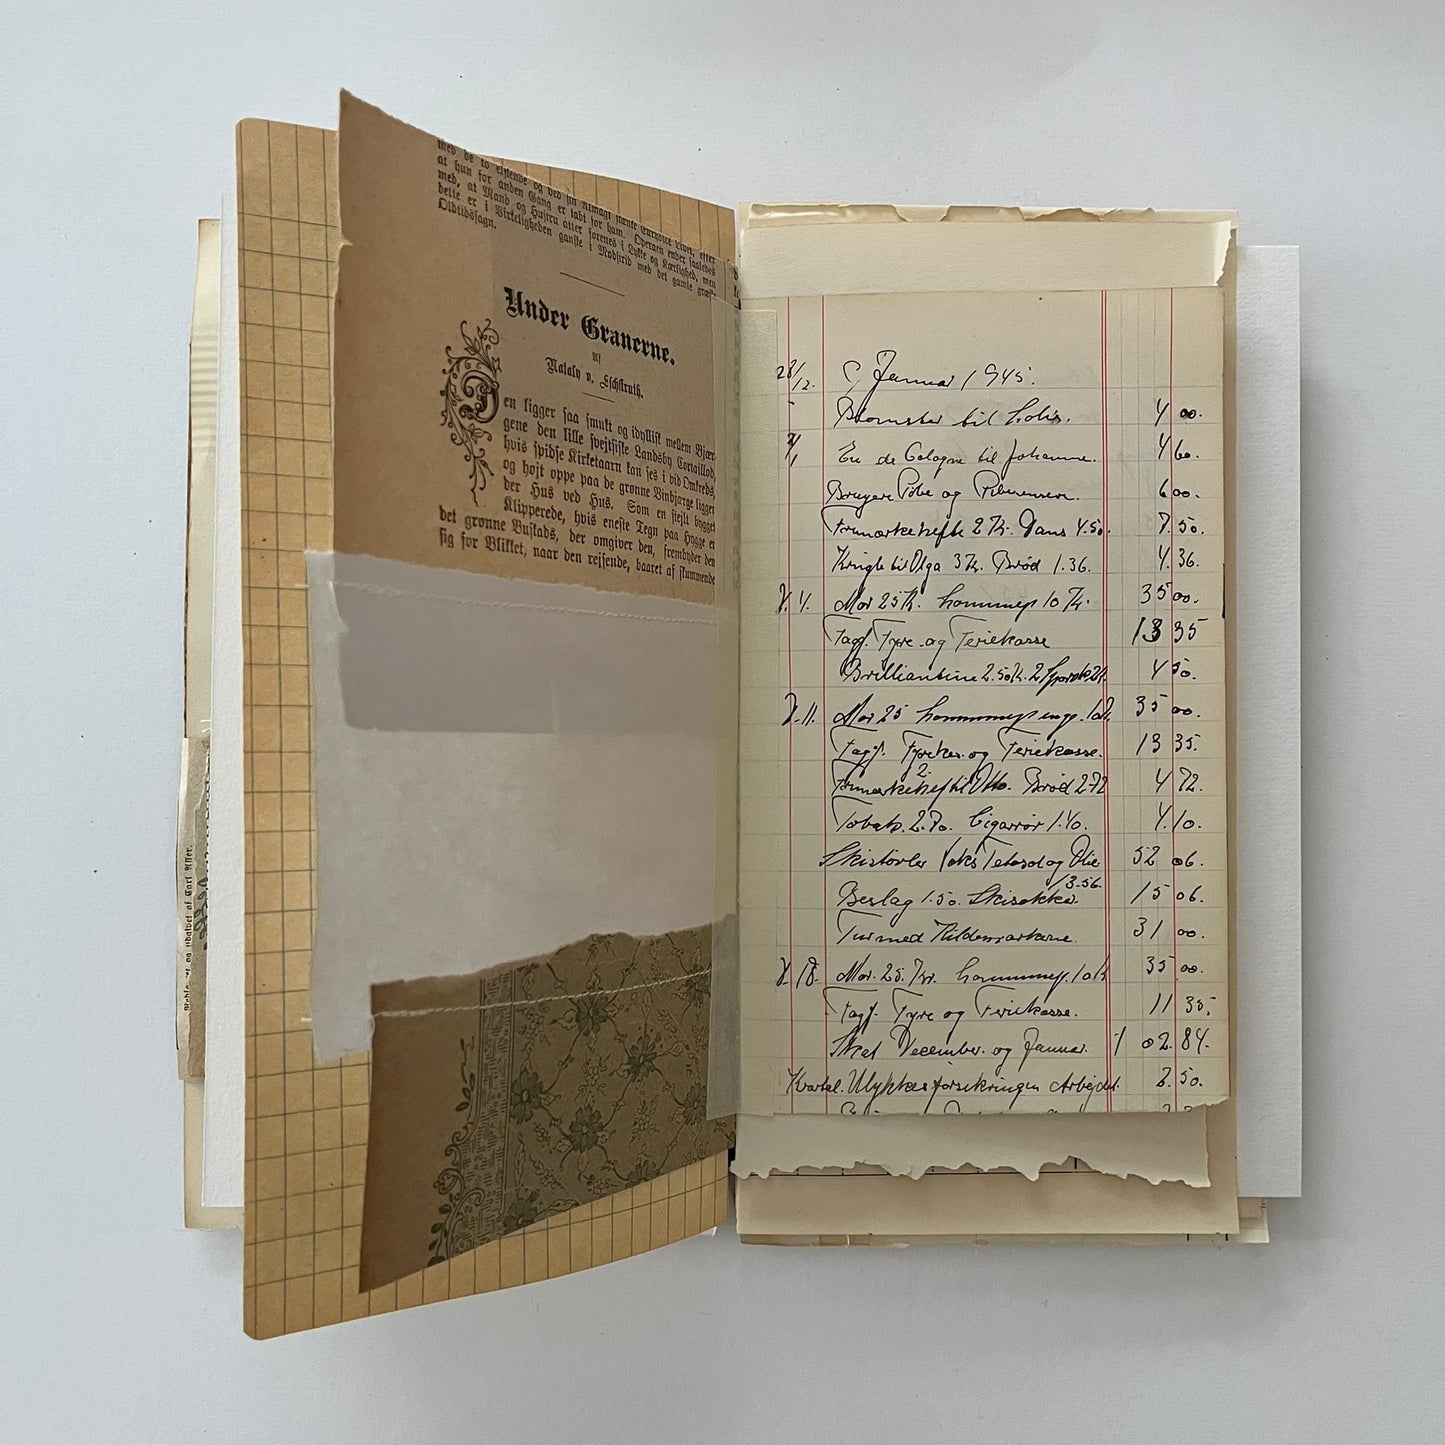 med de to elskende og ved sin Almagt skænke Eurydice Livet, efter
at hun for anden Gang er tabt for ham. Operaen ender saaledes
med, at Mand og Hustru atter forenes i Lykke og Kærlighed, men
dette er i Virkeligheden ganske i Modstrid med det gamle græsk-
Oldtidssagn.
Under Granerne.
Af
Nataly v. Eschstruth.
Den ligger saa smukt og idyllisk mellem Bjær
gene den lille svejtsiske Landsby Cortaillod,
hvis spidse Kirketaarn kan ses i vid Omkreds,
og højt oppe paa de grønne Vinbjærge ligger
der Hus ved Hus. Som en stejlt bygget
Klipperede, hvis eneste Tegn paa Hygge er
det grønne Buskads, der omgiver den, frembyder den
sig for Blikket, naar den rejsende, baaret af skummende
af Carl Aller.
28/12. Januar 1945.
Blomster til 4 00.
Eau de Cologne til Johanne. 4 60.
Bruyere Pibe og Piberensere. 6 00.
Frimærkehefte 2 Kr. Dans 4.50. 7.50.
Kringle til Olga 3 Kr. Brød 1.36. 4.36.
Mor 25 Kr. Lommep 10 Kr. 35 00.
Fagf. Fyre. og Feriekasse 13 35
Brilliantine 2.50 Kr. 2 4 50.
11. Mor 25 Lommep 35 00.
Fagf. og Feriekasse. 13 35.
2 Frimærkehef til Otto. Brød 2.72 4 72.
Tobak. 2.70. Cigarrør 1.40. 4.10.
Skistøvler og Olie 52 06.
Beslag 1.50. Skisokker. 13.56. 15 06.
Tur med 31 00.
18. Mor. 25. Kr. Lommep. 10 Kr 35 00.
Fagf. Fyre og Feriekasse. 11 35.
Skat December. og Januar. 1 02.84.
Kvartal. Ulykkesforsikringen Arbejdet. 2.50.